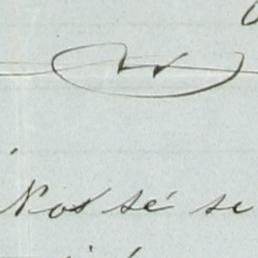 Nos sé se